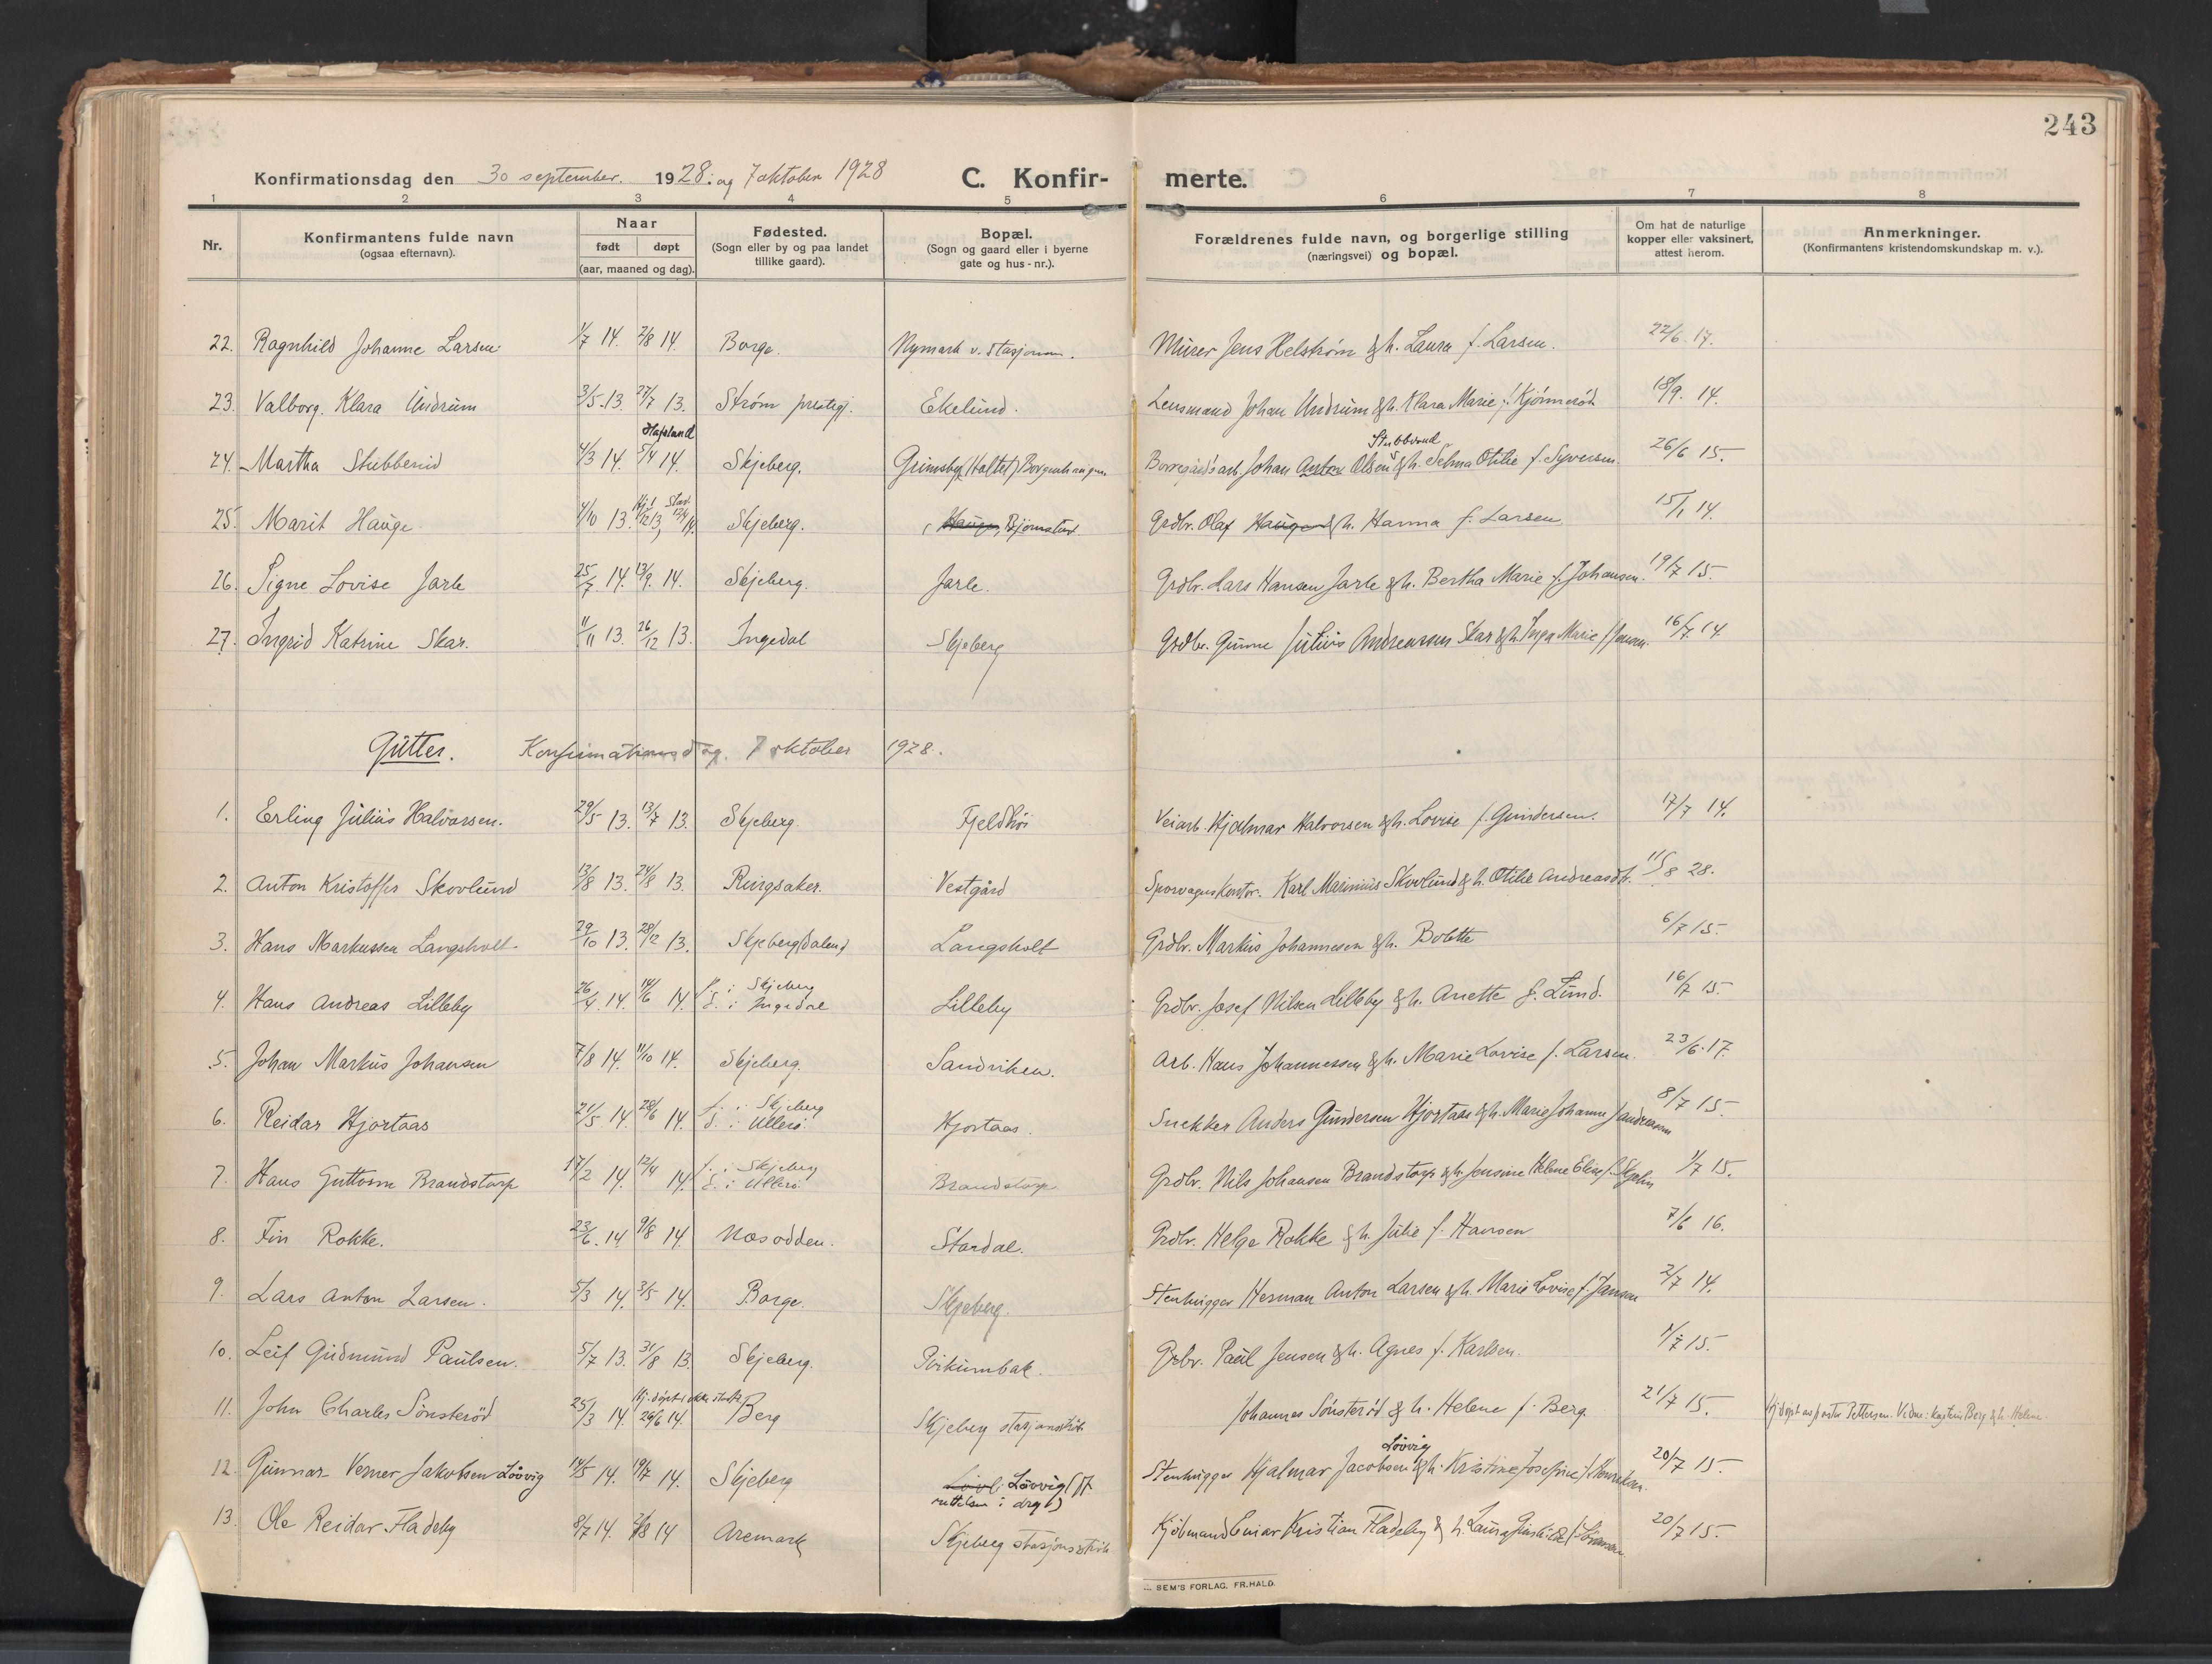 243
Konfirmationsdag den 30 september. 1928. og 7 oktober 1928 C. Konfir- merte.
1 2 3 4 5 6 7 8
Nr.
Konfirmantens fulde navn
(ogsaa efternavn).
Naar
født døpt
(aar, maaned og dag).
Fødested.
(Sogn eller by og paa landet
tillike gaard).
Bopæl.
(Sogn og gaard eller i byerne
gate og hus-nr.).
Forældrenes fulde navn, og borgerlige stilling
(næringsvei) og bopæl.
Om hat de naturlige
kopper eller vaksinert,
attest herom.
Anmerkninger.
(Konfirmantens kristendomskundskap m. v.).
22. Ragnhild Johanne Larsen 1/7 14. 2/8 14. Borge. Nymark v. stasjonen. Murer Jens Helstrøm & h. Laura f. Larsen. 22/6 17.
23. Valborg Klara Undrum 3/5 13. 27/7 13. Strøm prestegj. Ekelund. Lensmand Johan Undrum & h. Klara Marie f. Kjønnerød 18/9. 14.
Hafslund Stubberud
24. Martha Stubberud 4/3 14. 5/4 14. Skjeberg. Grimsby (Haltet) Borgenhaugen Borregårds arb. Johan Anton Olsen & h. Selma Otilie f. Syversen. 26/6 15.
25. Marit Hauge 4/10 13. Skjeberg. Hauge, Bjørnstad Grdbr. Olaf Haugen & h. Hanna f. Larsen 15/1 14.
26. Signe Lovise Jarle 25/7 14. 13/9. 14. Skjeberg. Jarle. Grdbr. Lars Hansen Jarle & h. Bertha Marie f. Johansen. 19/7 15.
27. Ingrid Katrine Skar. 11/11 13. 26/12 13. Ingedal Skjeberg Grdbr. Gunne Julius Andreassen Skar & h. Inga Marie f. Jensen. 16/7 14.
Gutter. Konfirmationsdag. 7 oktober 1928.
1. Erling Julius Halvorsen. 29/5 13. 13/7 13. Skjeberg. Fjeldhøi Veiarb. Hjalmar Halvorsen & h. Lovise f. Gundersen. 17/7 14.
2. Anton Kristoffer Skovlund 13/8 13. 24/8 13. Ringsaker. Vestgård Sporvognskontr. Karl Marinius Skovlund & h. Otilie Andreasdtr. 11/8 28.
3. Hans Markussen Langsholt 29/10 13. 28/12 13. Skjebergdalen Langsholt Grdbr. Markus Johannesen & h. Bolette 6/7 15.
4. Hans Andreas Lilleby 26/4 14. 14/6 14. f. i Skjeberg
d. i Ingedal Lilleby Grdbr. Josef Nilsen Lilleby & h. Anette f. Lund. 16/7 15.
5. Johan Markus Johansen 7/8 14. 11/10 14. Skjeberg. Sandviken. Arb. Hans Johannessen & h. Marie Lovise f. Larsen. 23/6. 17.
6. Reidar Hjortaas 21/5 14. 28/6 14. f. i Skjeberg
d. i Ullerø Hjortaas. Snekker Anders Gundersen Hjortaas & h. Marie Johanne f. Andreasen 8/7 15.
7. Hans Guttorm Brandstorp 17/2 14. 12/4 14. f. i Skjeberg
d. i Ullerø Brandstorp Grdbr. Nils Johansen Brandstorp & h. Jensine Helene Eline f. 1/7 15.
8. Fin Rokke. 23/6. 14. 9/8 14. Næsodden. Stordal. Grdbr. Helge Rokke & h. Julie f. Hansen 7/6 16.
9. Lars Anton Larsen. 5/3 14. 3/5 14. Borge. Skjeberg. Stenhugger Herman Anton Larsen & h. Marie Lovise f. Jansen 2/7 14.
10. Leif Gudmund Paulsen. 5/7 13. 31/8 13. Skjeberg. Grdbr. Paul Jensen & h. Agnes f. Karlsen. 1/7 15.
11. John Charles Sønsterød 25/3 14. 29/6 14. Berg Skjeberg stasjonstrøk Johannes Sønsterød & h. Helene f. Berg. 21/7 15. Hj. døpt av pastor Pettersen. Vidne: Berg & h. Helene.
Løvvig
12. Gunnar Verner Jakobsen Løvvig 14/5 14. 19/7 14. Skjeberg Løvvig Stenhugger Hjalmar Jacobsen & h. Kristine Josefine f. Henriksen. 20/7 15.
13. Ole Reidar Fladeby 8/7 14. 2/8 14 Aremark Skjeberg stasjonstrøk Kjøbmand Einar Kristian Fladeby & h. Laura 20/7 15.
SEM'S FORLAG, FR.HALD.